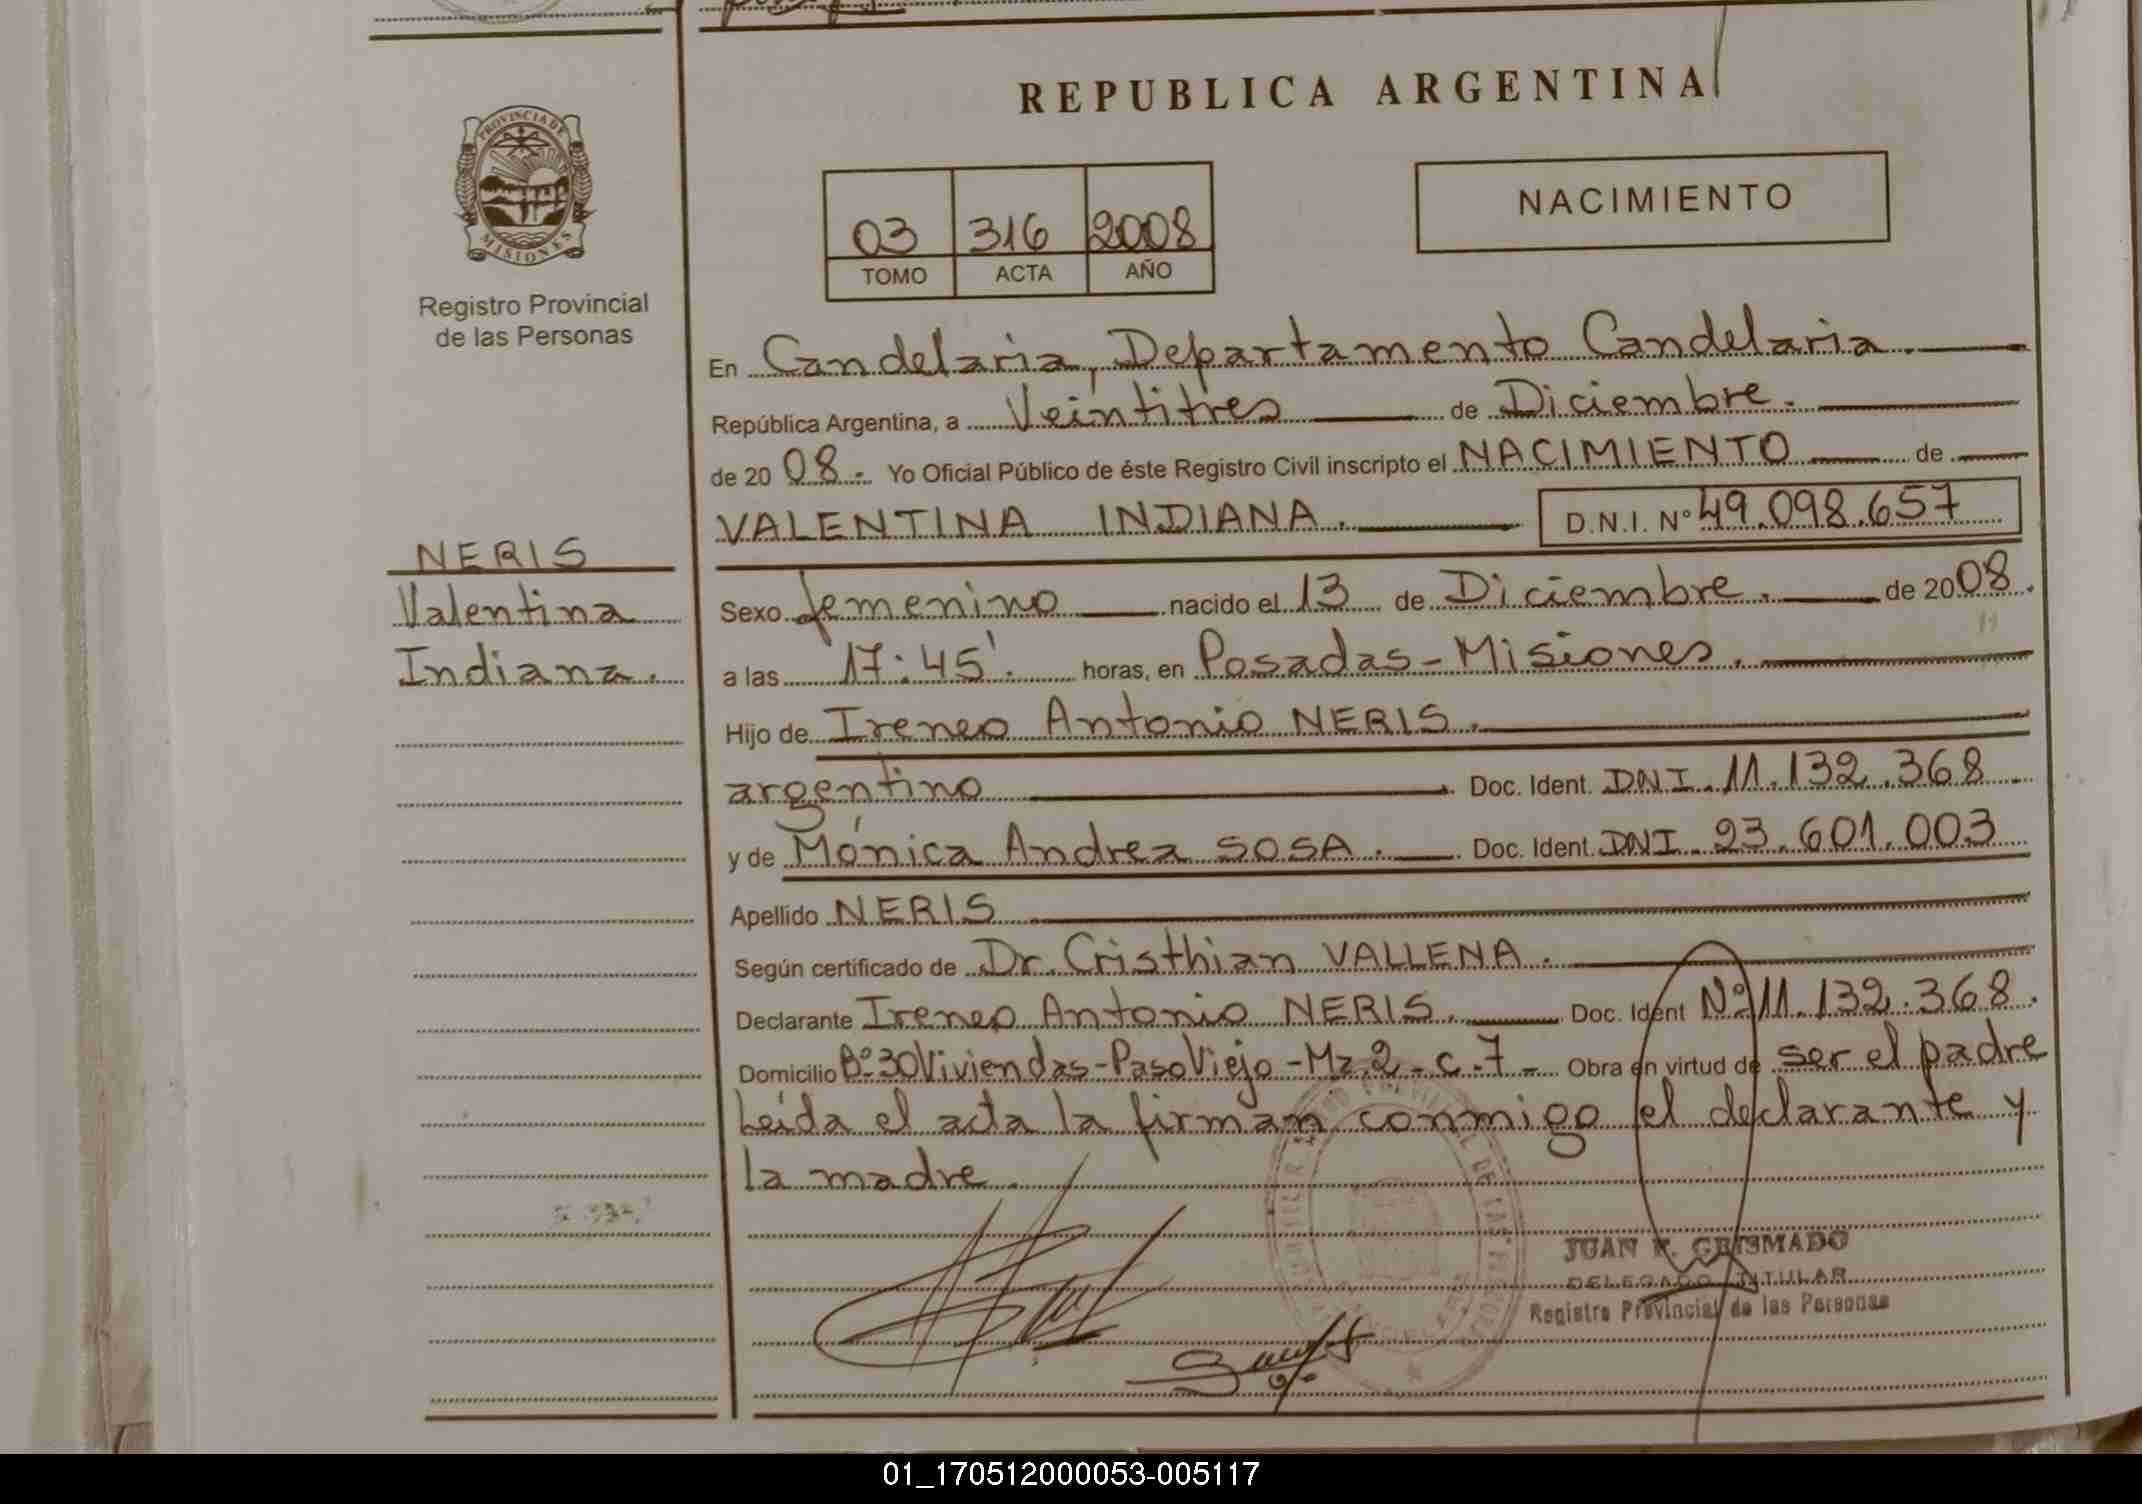 REPUBLICA ARGENTINA
PROVINCIA DE
MISIONES
Registro Provincial
de las Personas
03 316 2008
TOMO ACTA AÑO
NACIMIENTO
En Candelaria, Departamento Candelaria.
República Argentina, a Veintitres de Diciembre.
de 20 08. Yo Oficial Público de éste Registro Civil inscripto el NACIMIENTO de
VALENTINA INDIANA. D.N.I. Nº 49.098.657
NERIS
Valentina
Indiana.
Sexo femenino nacido el 13 de Diciembre. de 2008.
a las 17:45'. horas, en Posadas-Misiones.
Hijo de Ireneo Antonio NERIS.
argentino Doc. Ident. DNI. 11.132.368
y de Mónica Andrea SOSA. Doc. Ident. DNI. 23.601.003
Apellido NERIS
Según certificado de Dr. Cristhian VALLENA.
Declarante Ireneo Antonio NERIS. Doc. Ident Nº 11.132.368.
Domicilio Bº 30 Viviendas-Paso Viejo-Mz.2-c.7- Obra en virtud de ser el padre
Leída el acta la firman conmigo el declarante y
la madre.
JUAN GRISMADO
DELEGADO TITULAR
Registro Provincial de las Personas
01_170512000053-005117